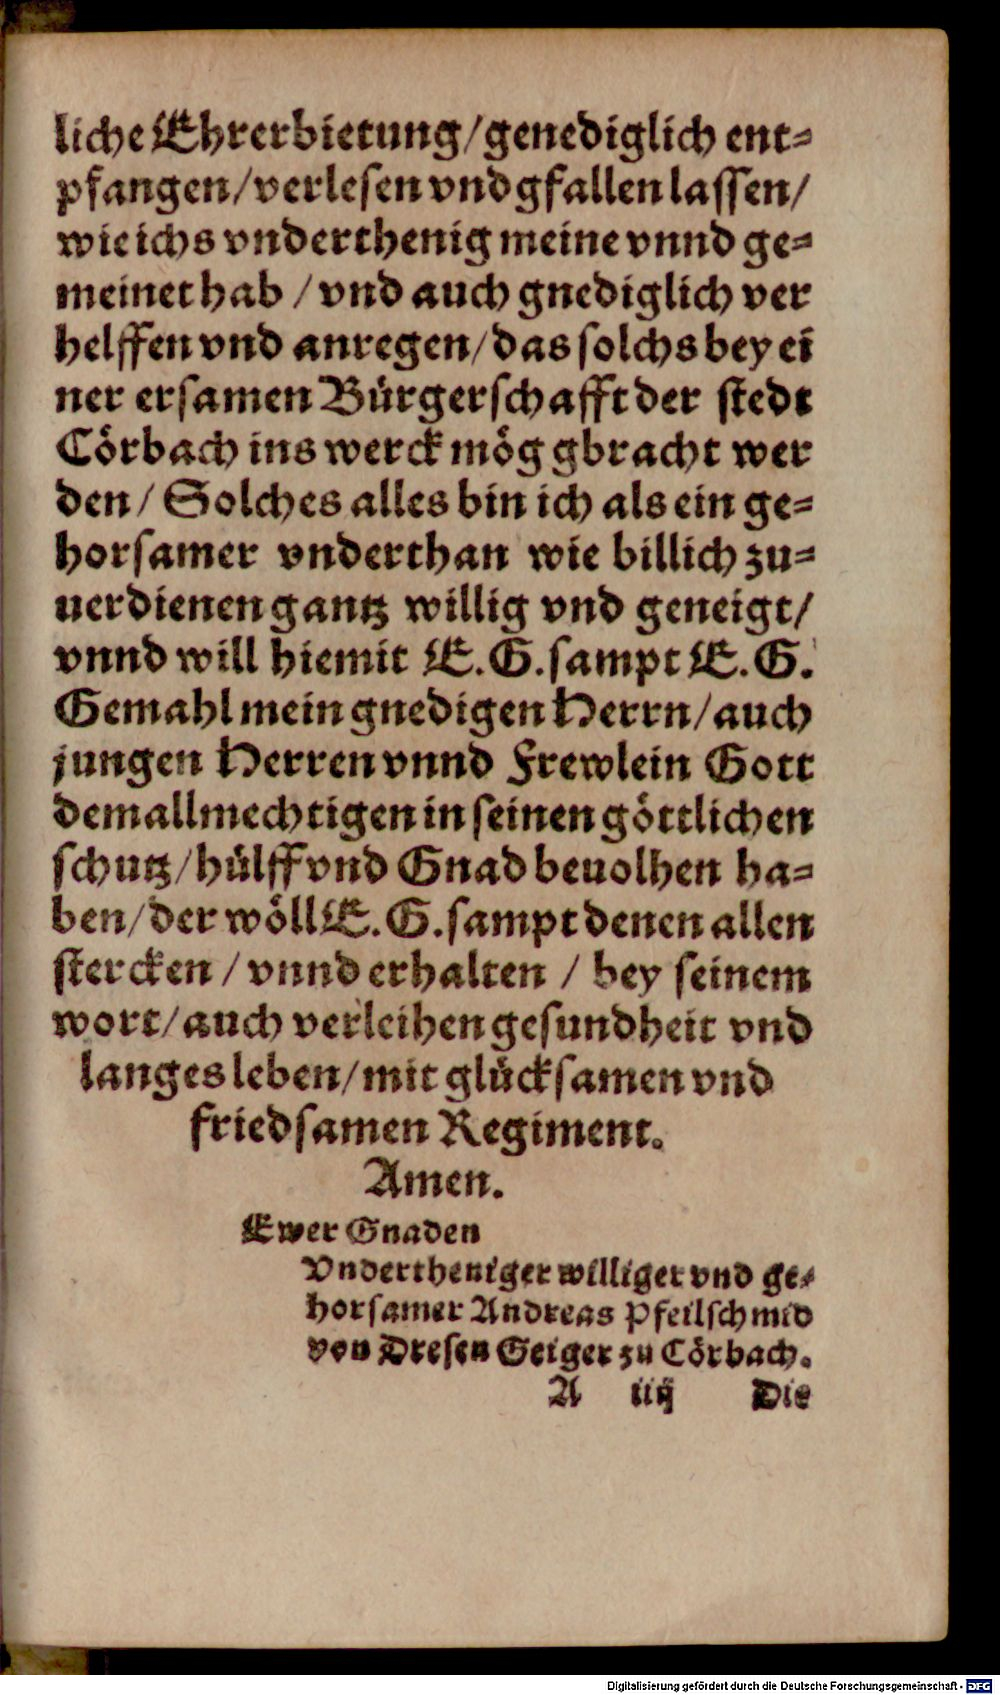 liche Ehrerbietung/genediglich ent⸗
pfangen/verlesen vnd gfallen lassen/
wie ichs vnderthenig meine vnnd ge⸗
meinet hab / vnd auch gnediglich ver
helffen vnd anregen/das solchs bey ei
ner ersamen Bürgerschafft der stedt
Cörbach ins werck mög gbracht wer
den/ Solches alles bin ich als ein ge⸗
horsamer vnderthan wie billich zu⸗
uerdienen gantz willig vnd geneigt/
vnnd will hiemit E.G.sampt E.G.
Gemahl mein gnedigen Herrn/auch
jungen Herren vnnd Frewlein Gott
dem allmechtigen in seinen göttlichen
schutz/hülff vnd Gnad beuolhen ha⸗
ben/der wöll E.G.sampt denen allen
stercken / vnnd erhalten / bey seinem
wort/auch verleihen gesundheit vnd
langes leben/mit glücksamen vnd
friedsamen Regiment.
Amen.
Ewer Gnaden
Vndertheniger williger vnd ge⸗
horsamer Andreas Pfeilschmid
von Dresen Geiger zu Cörbach.
A iiij Die
Digitalisierung gefördert durch die Deutsche Forschungsgemeinschaft - DFG